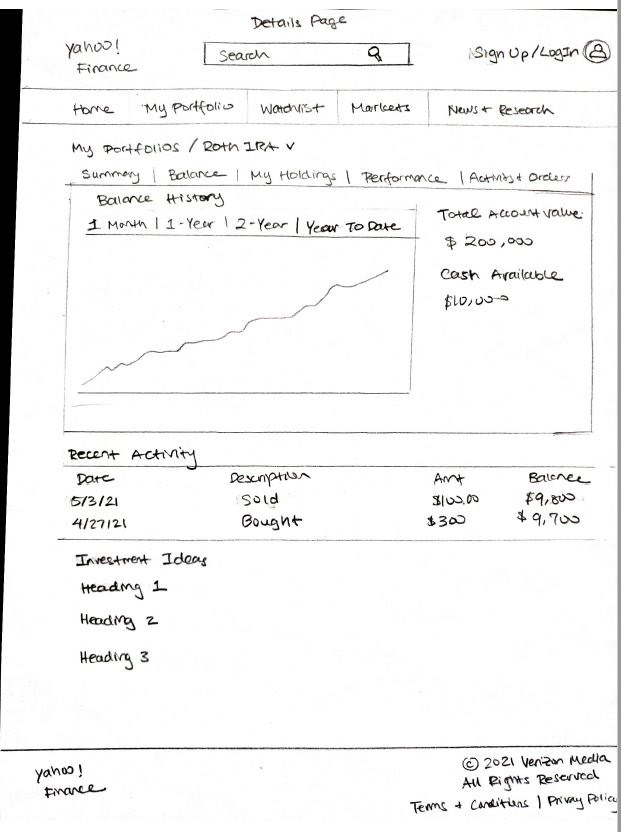 Details Page
yahoo!
Finance
Search
Sign Up/LogIn
Home
My Portfolio
Watchlist
Markets
News + Research
My Portfolios / Roth IRA v
Summary | Balance | My Holdings | Performance | Activity + Orders
Balance History
1 Month | 1-Year | 2-Year | Year To Date
Total Account Value:
$ 200,000
Cash Available
$10,000
Recent Activity
Date Description Amt Balance
5/3/21 Sold $100.00 $9,800
4/27/21 Bought $300 $9,700
Investment Ideas
Heading 1
Heading 2
Heading 3
yahoo!
Finance
© 2021 Verizon Media
All Rights Reserved
Terms + Conditions | Privacy Policy